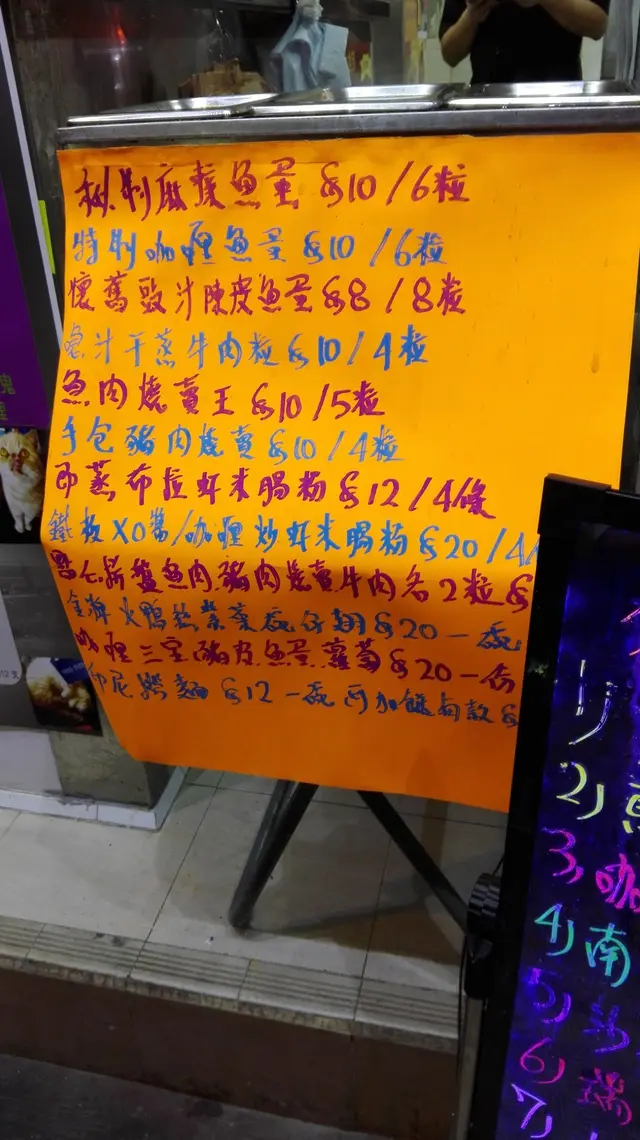 秘制麻辣魚蛋 $10/6粒
特制咖喱魚蛋 $10/6粒
懷舊豉汁陳皮魚蛋 $8/8粒
汁干蒸牛肉粒 $10/4粒
魚肉燒賣王 $10/5粒
手包豬肉燒賣 $10/4粒
即蒸布拉虾米腸粉 $12/4條
鐵板XO醬/咖喱炒虾米腸粉 $20/4
點心拼盤魚肉豬肉燒賣牛肉各2粒 $
金牌火鴨絲紫菜碗仔翅 $20一碗
咖喱三宝豬皮魚蛋蘿蔔 $20一合
印尼撈麵 $12一碗可加餸每款 $
1)
2)
3) 咖
4) 南
5)
6) 瑞
7)